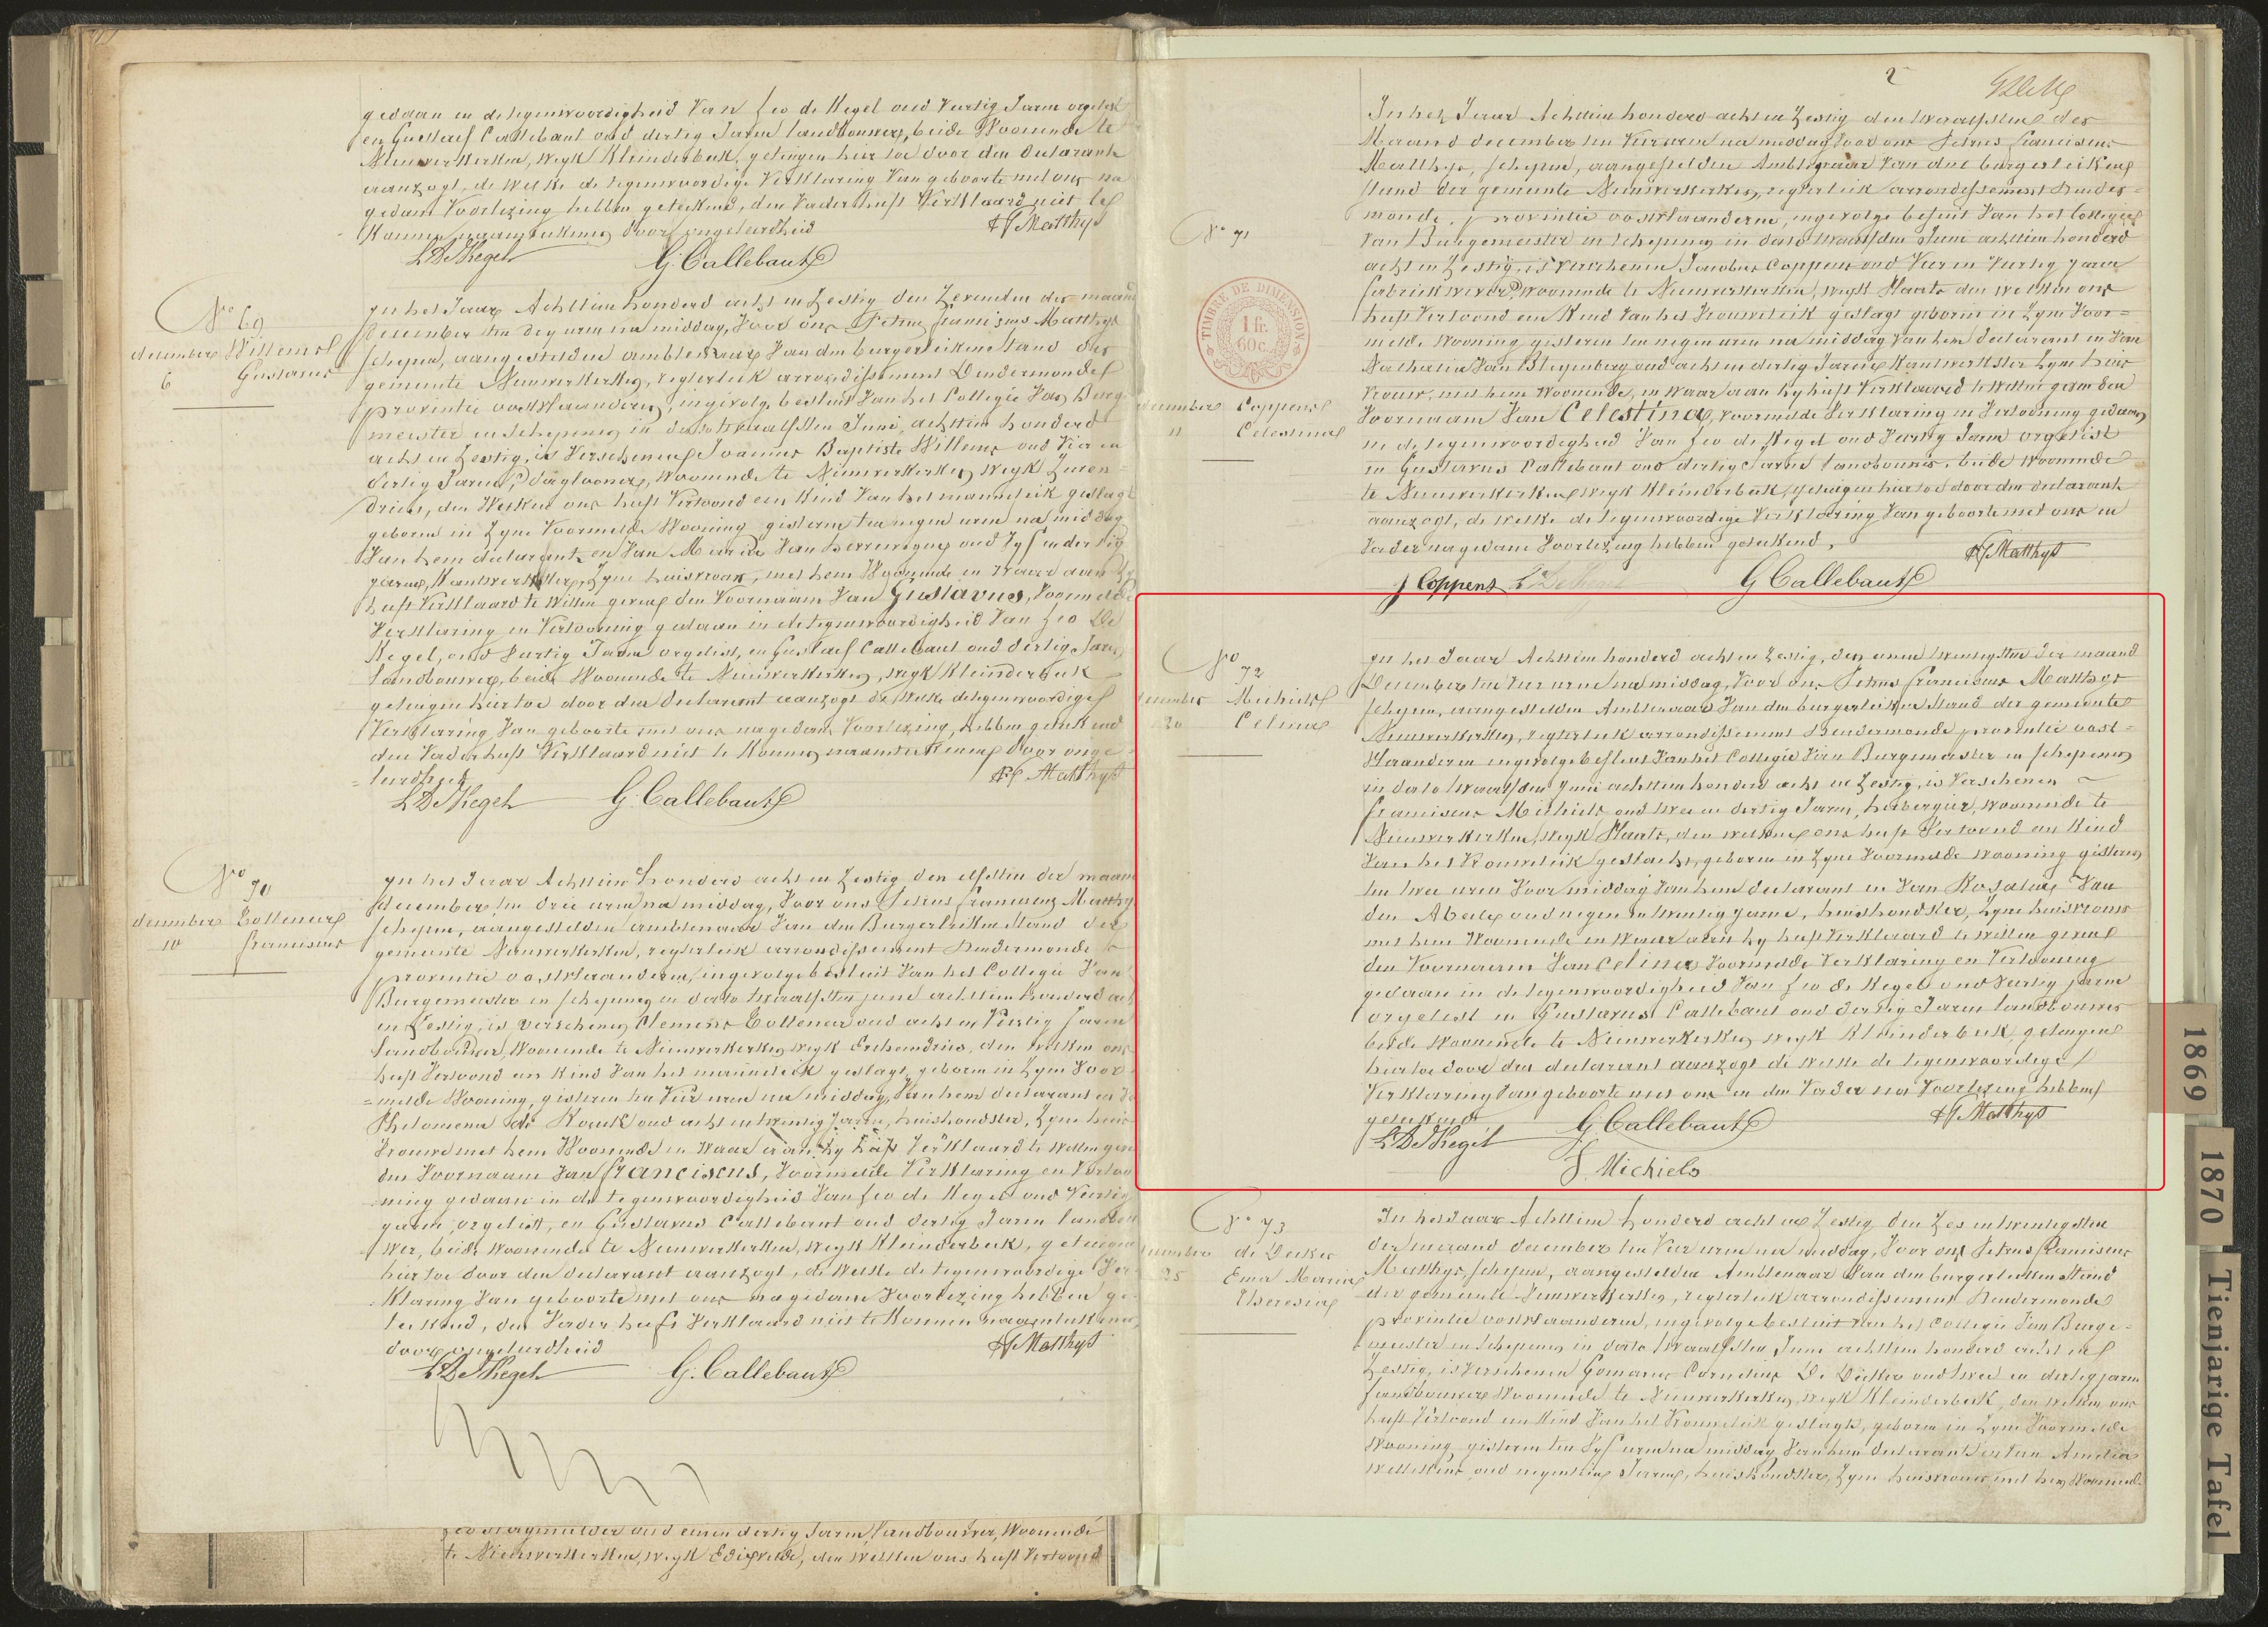 gedaan in de tegenwoordigheid Van Leo de Kegel oud Veertig Jaren orgelist
en Gustaef Callebaut oud dertig Jaren landbouwer, beide Woonende te
Nieuwerkerken, Wyk Kleinderbeek, getuigen hier toe door den declarant
aanzogt, de welke de tegenwoordige Verklaring Van geboorte met ons na
gedane Voorlezing hebben geteekend, den Vader heeft Verklaard niet te
Konnen naamteekenen door ongeleerdheid
PF Matthys
L De Kegel G. Callebaut
No 69
december Willems
6 Gustavus
In het Jaar Achttien honderd acht en Zestig den Zevensten der maand
December ten dry uren na middag, Voor ons Petrus Franciscus Matthys
schepen, aangestelden ambtenaar Van den burgerlieken Stand der
gemeente Nieuwerkerken, regterlick arrondissement Dendermonde
provintie oostvlaanderen, ingevolge besluit Van het Collegie Van Burge
meester en Schepenen in dato twaalfsten Juni, achttien honderd
acht en Zestig, is Verschenen Joannes Baptiste Willems oud Vier en
dertig Jaren, daglooner, Woonende te Nieuwerkerken Wyk
den Welken ons heeft Vertoond een Kind Van het mannelick geslagt
geboren in Zyne Voormelde Wooning gisteren ten negen uren na middag
Van hem declarant en Van Maria Van oud Vyf en dertig
Jaren, Kantwerkster, Zyne huisvrouw, met hem Woonende en Waar aan hy
heeft Verklaard te Willen geven den Voornaam Van Gustavus, Voormelde
Verklaring en Vertooning gedaan in de tegenwoordigheid Van Leo De
Kegel, oud Veertig Jaren orgelist, en Gustaef Callebaut oud dertig Jaren
landbouwer, beide Woonende te Nieuwerkerken, Wyk Kleinderbeek
getuigen hier toe door den declarant aanzogt de Welke de tegenwoordige
Verklaring Van geboorte met ons na gedane Voorlezing, hebben geteekend
den Vader heeft Verklaard niet te Konnen naamteekenen door onge
= leerdheid
PF Matthys
L De Kegel G. Callebaut
No 70
december Cottenier
10 Franciscus
In het Jaar Achttien honderd acht en Zestig den elfsten der maand
december ten drie uren na middag, Voor ons Petrus Franciscus Matthys
schepen, aangestelden ambtenaar Van den Burgerlieken Stand der
gemeente Nieuwerkerken, regterlick arrondissement Dendermonde
provintie oostvlaanderen, ingevolge besluit Van het Collegie Van
Burgemeester en schepenen in dato twaalfsten juni achttien honderd acht
en Zestig, is verschenen Clemens Cottenier oud acht en Veertig Jaren
landbouwer, Woonende te Nieuwerkerken Wyk den welken ons
heeft Vertoond een Kind Van het mannelick geslagt, geboren in Zyne Voor
= melde Wooning, gisteren ten Vier uren na middag, Van hem declarant en Van
Philomena de oud acht en twintig Jaren, huishoudster, Zyne huis
Vrouw met hem Woonende en Waar aan hy heeft Verklaard te Willen geven
den Voornaam Van Franciscus, Voormelde Verklaring en Vertoo
ning gedaan in de tegenwoordigheid Van Leo de Kegel oud Veertig
jaren, orgelist, en Gustavus Callebaut oud dertig Jaren landbou
wer, beide Woonende te Nieuwerkerken, Wyk Kleinderbeek, getuigen
hier toe door den declarant aanzogt, de Welke de tegenwoordige Ver
klaring Van geboorte met ons na gedane Voorlezing hebben ge
teekend, den Vader heeft Verklaard niet te Konnen naamteekenen,
door ongeleerdheid
PF Matthys
L De Kegel G. Callebaut
oud eenen dertig Jaren, landbouwer, Woonende
te Nieuwerkerken, wyk den welken ons heeft Vertoond
2
No 71
TIMBRE DE DIMENSION
1 fr.
60 c.
december Coppens
11 Celestina
In het Jaar Achttien honderd acht en Zestig den twaalfsten der
Maand december ten Vier uren na middag Voor ons Petrus Franciscus
Matthys, schepen, aangestelden Ambtenaar Van den burgerlieken
stand der gemeente Nieuwerkerken, regterlick arrondissement Dender=
monde, provintie oostvlaanderen, ingevolge besluit Van het Collegie
Van Burgemeester en Schepenen in dato twaalfden Juni achttien honderd
acht en Zestig, is Verschenen Jacobus Coppens oud Vier en Veertig Jaren
fabriekwever, Woonende te Nieuwerkerken, wyk Staats den welken ons
heeft Vertoond een Kind Van het Vrouwelick geslagt geboren in Zyne Voor=
melde Wooning gisteren ten negen uren na middag Van hem declarant en Van
Nathalia Van oud acht en dertig Jaren Kantwerkster Zyne huis
vrouw, met hem Woonende, en waar aan hy heeft Verklaard te Willen geven den
Voornaam Van Celestina, Voormelde Verklaring en Vertooning gedaan
in de tegenwoordigheid Van Leo de Kegel oud Veertig Jaren orgelist
en Gustavus Callebaut oud dertig Jaren landbouwer, beide Woonende
te Nieuwerkerken wyk Kleinderbeek, getuigen hier toe door den declarant
aanzogt, de Welke de tegenwoordige Verklaring Van geboorte met ons en
Vader na gedane Voorlezing hebben geteekend,
PF Matthys
J Coppens L De Kegel G Callebaut
No 72
december Michiels
20 Celina
In het Jaar Achttien honderd acht en Zestig, den eenen twintigsten der maand
December ten Vier uren na middag, Voor ons Petrus Franciscus Matthys
schepen, aangestelden Ambtenaar Van den burgerlieken Stand der gemeente
Nieuwerkerken, regterlick arrondissement Dendermonde provintie oost=
Vlaanderen ingevolge besluit Van het Collegie Van Burgemeester en schepenen
in dato twaalfden Juni achttien honderd acht en Zestig, is Verschenen
Franciscus Michiels, oud twee en dertig Jaren, herbergier, Woonende te
Nieuwerkerken, wyk Staats, den welken ons heeft Vertoond een Kind
Van het Vrouwelick geslacht, geboren in Zyne Voormelde Wooning gisteren
ten twee uren Voor middag Van hem declarant en Van Rosalia Van
den Abeele oud negen en twintig jaren, huishoudster, Zyne huisvrouw
met hem Woonende en Waar aen hy heeft Verklaard te Willen geven
den Voornaam Van Celina Voormelde Verklaring en Vertooning
gedaan in de tegenwoordigheid Van Leo de Kegel oud Veertig jaren
orgelist en Gustavus Callebaut oud dertig Jaren landbouwer
beide Woonende te Nieuwerkerken wyk Kleinderbeek, getuigen
hier toe door den declarant aanzogt de Welke de tegenwoordige
Verklaring Van geboorte met ons en den Vader na Voorlezing hebben
geteekend
PF Matthys
L De Kegel G Callebaut
F. Michiels
No 73
december de Decker
25 Ema Maria
Theresia
In het Jaar Achttien honderd acht en Zestig den Zes en twintigsten
der maand december ten Vier uren na middag, Voor ons Petrus Franciscus
Matthys, schepen, aangestelden Ambtenaar Van den burgerlieken Stand
der gemeente Nieuwerkerken, regterlick arrondissement Dendermonde
provintie oostvlaanderen, ingevolge besluit Van het Collegie Van Burge=
meester en Schepenen in dato twaalfsten Juni achttien honderd acht en
Zestig, is Verschenen Gomarus Cornelius De Decker oud twee en dertig jaren
landbouwer Woonende te Nieuwerkerken, wyk Kleinderbeek, den welken ons
heeft Vertoond een Kind Van het Vrouwelick geslagt, geboren in Zyne Voormelde
Wooning gisteren ten Vyf uren na middag Van hem declarant en Van Amelia
oud negentien Jaren, huishoudster, Zyne huisvrouw, met hem Woonende
1869
1870
Tienjarige Tafel